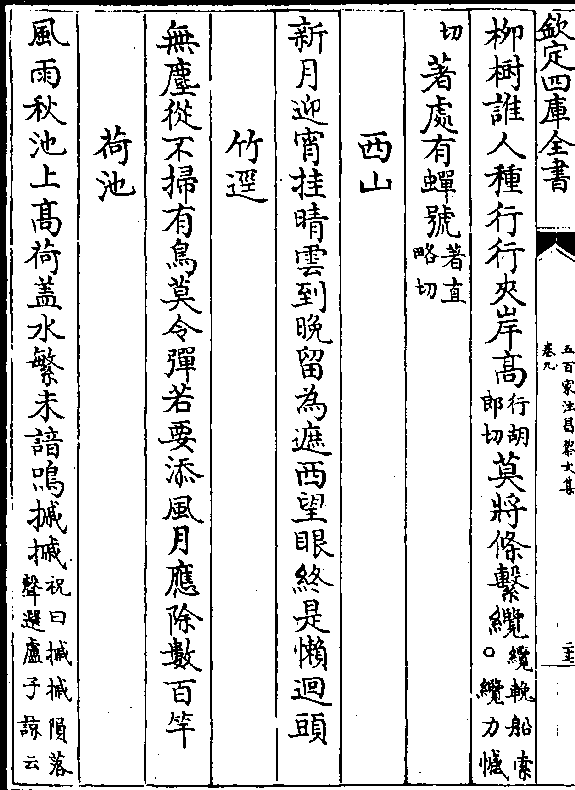 欽定四庫全書
五百家注昌黎文集
卷九
柳樹誰人種行行夾岸高行胡郎切莫將條繫纜。纜輓船索纜力憾
切著處有蟬號著直略切
西山
新月迎宵挂晴雲到晚留為遮西望眼終是懶迴頭
竹逕
無塵從不掃有鳥莫令彈若要添風月應除數百竿
荷池
風雨秋池上高荷蓋水繁未諳鳴摵摵祝曰摵摵隕落聲選盧子諒云